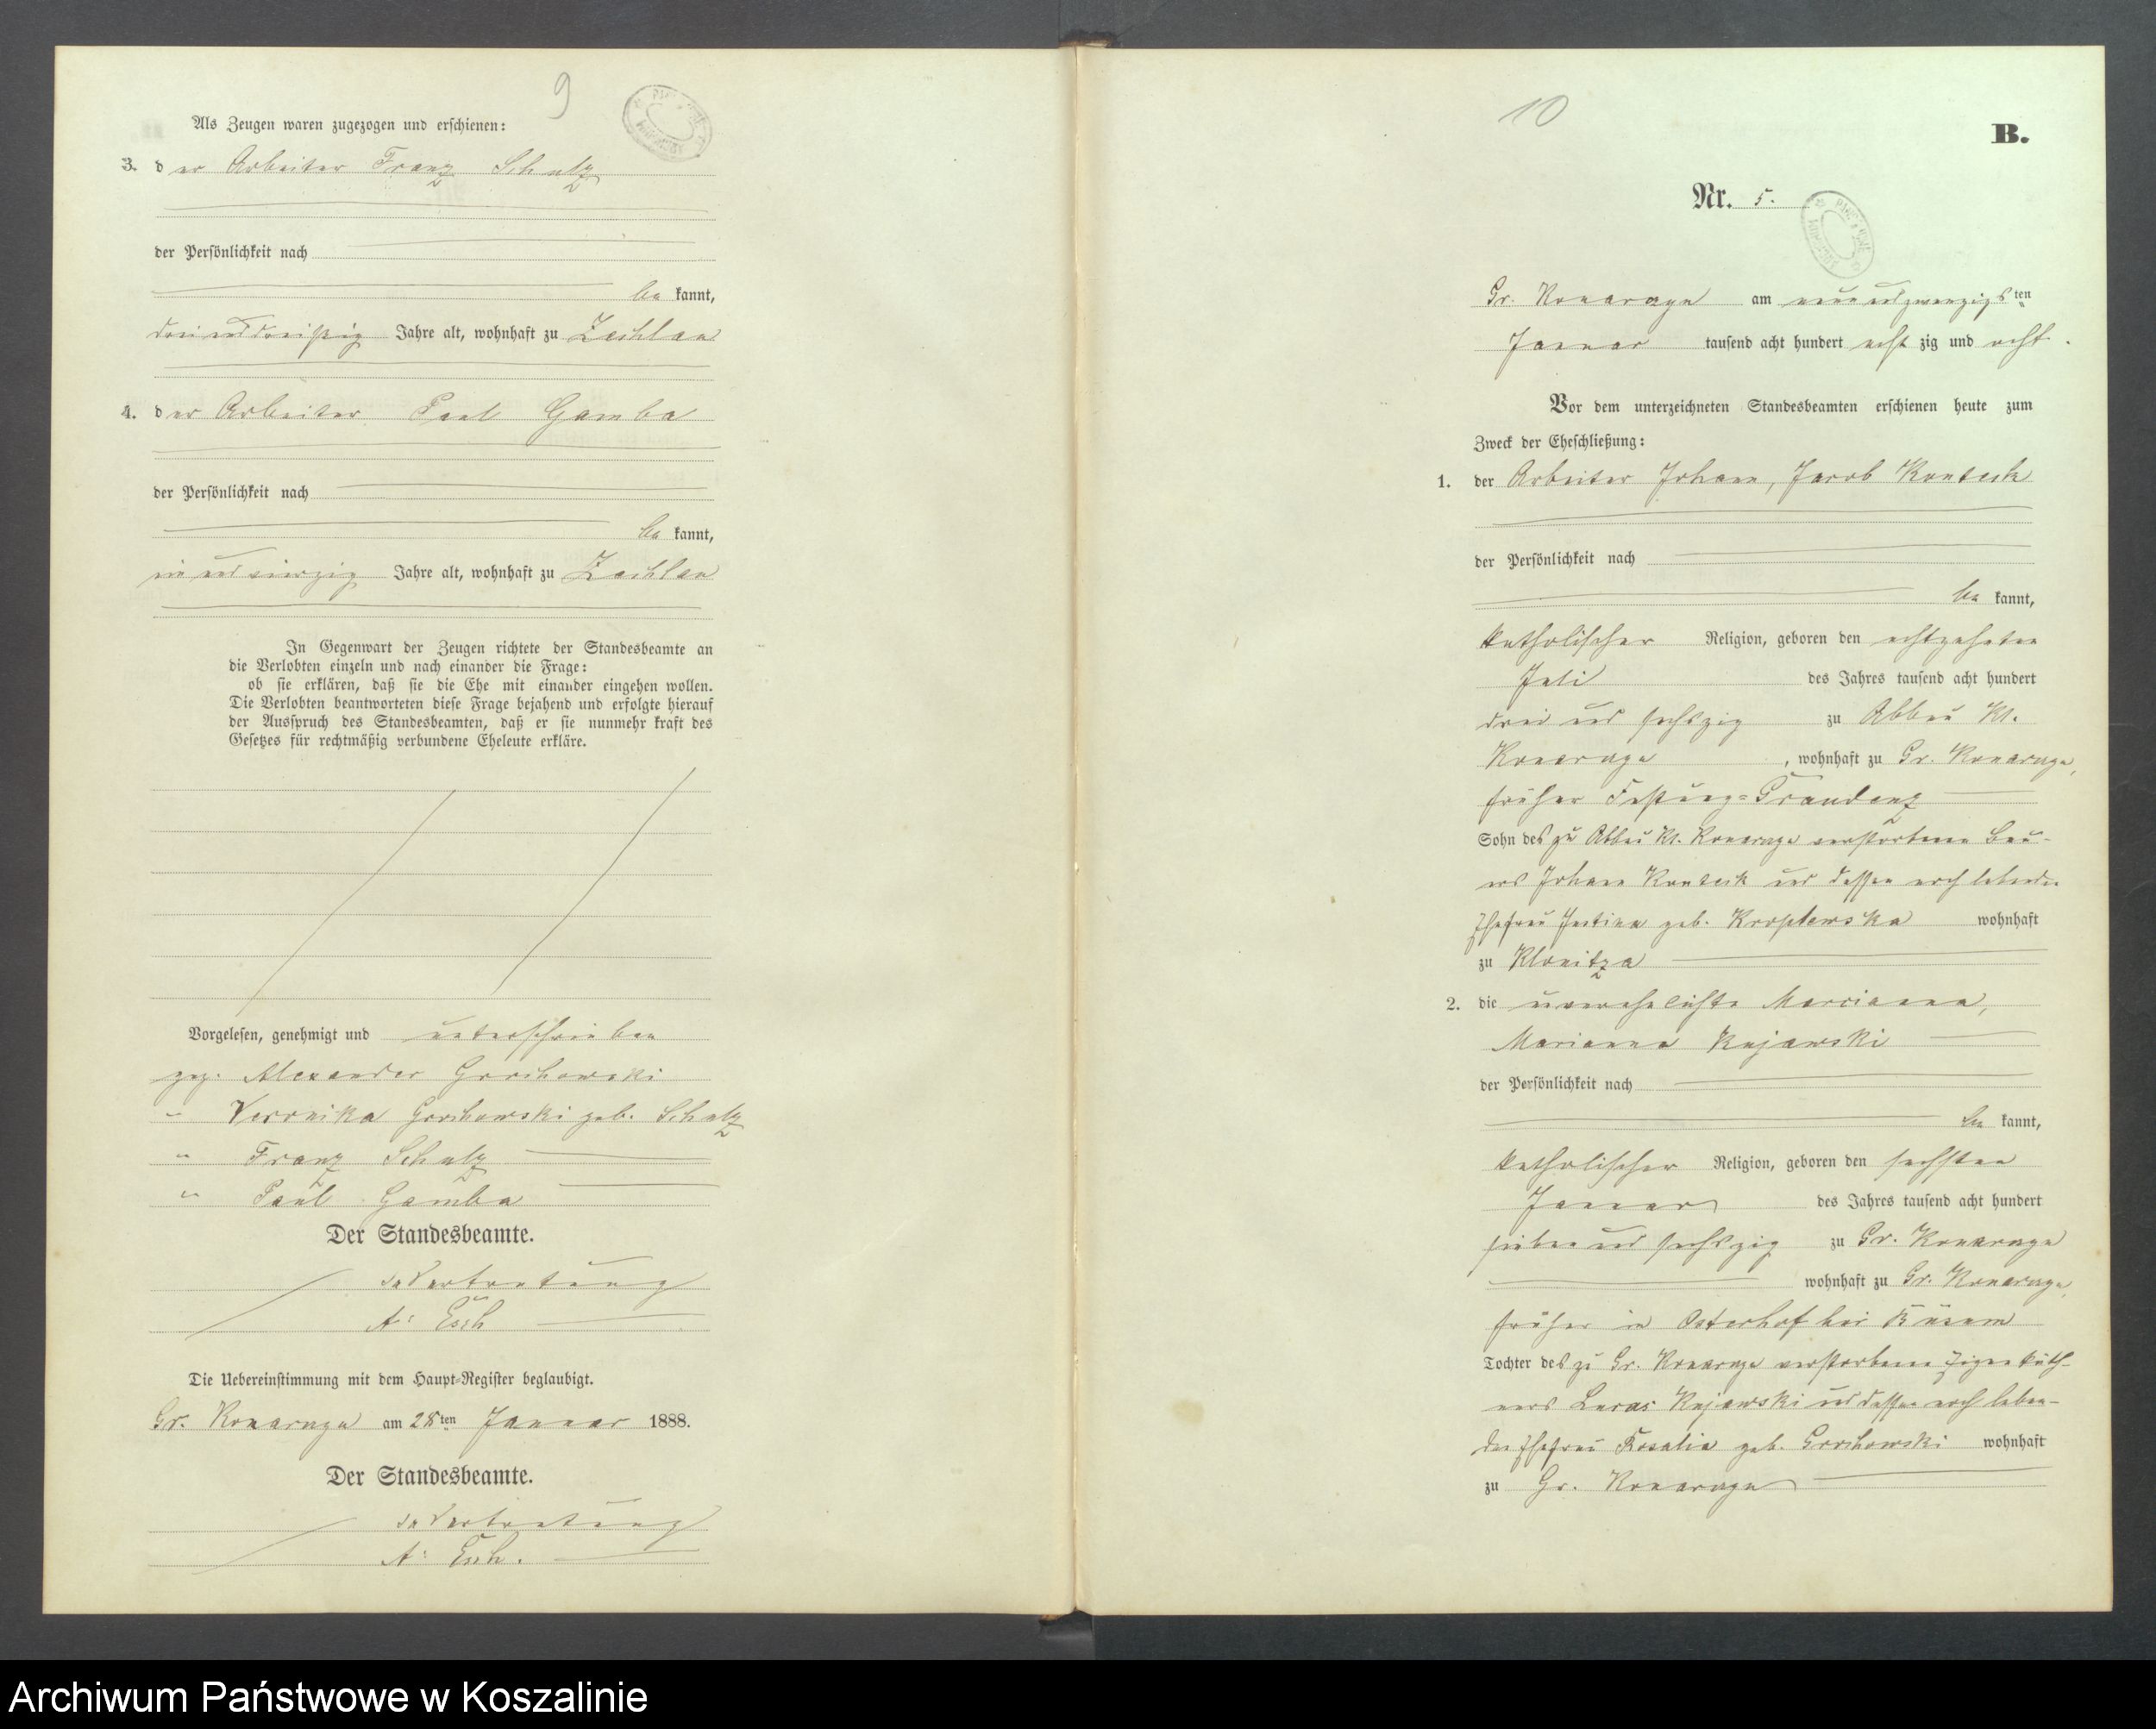 9
Als Zeugen waren zugezogen und erschienen:
3. der Arbeiter Franz Schulz
der Persönlichkeit nach
bekannt,
drei und dreißig Jahre alt, wohnhaft zu Zechlau
4. der Arbeiter Paul Gamba
der Persönlichkeit nach
bekannt,
ein und vierzig Jahre alt, wohnhaft zu Zechlau
In Gegenwart der Zeugen richtete der Standesbeamte an
die Verlobten einzeln und nach einander die Frage:
ob sie erklären, daß sie die Ehe mit einander eingehen wollen.
Die Verlobten beantworteten diese Frage bejahend und erfolgte hierauf
der Ausspruch des Standesbeamten, daß er sie nunmehr kraft des
Gesetzes für rechtmäßig verbundene Eheleute erkläre.
Vorgelesen, genehmigt und unterschrieben
gez. Alexander Grochowski
" Veronika Grochowski geb. Schulz
" Franz Schulz
" Paul Gamba
Der Standesbeamte.
In Vertretung
Esch
Die Uebereinstimmung mit dem Haupt-Register beglaubigt.
Gr. Konarczyn am 28ten Januar 1888.
Der Standesbeamte.
In Vertretung
Esch.
10
B.
Nr. 5.
Gr. Konarczyn am neun und zwanzigsten
Januar tausend acht hundert acht zig und acht.
Vor dem unterzeichneten Standesbeamten erschienen heute zum
Zweck der Eheschließung:
1. der Arbeiter Johann, Jacob
der Persönlichkeit nach
bekannt,
katholischer Religion, geboren den achtzehnten
Juli des Jahres tausend acht hundert
drei und sechszig zu Abbau Kl.
Konarczyn, wohnhaft zu Gr. Konarczyn,
früher Festung-Graudenz
Sohn des zu Abbau Kl. Konarczyn verstorbenen Bau-
ers Johann und dessen noch lebenden
Ehefrau Justina geb. wohnhaft
zu Klonitza
2. die unverehelichte Marcianna,
Marianna Kujawski
der Persönlichkeit nach
bekannt,
katholischer Religion, geboren den sechsten
Januar des Jahres tausend acht hundert
sieben und sechszig zu Gr. Konarczyn
wohnhaft zu Gr. Konarczyn,
früher in Osterhof bei Büsum
Tochter des zu Gr. Konarczyn verstorbenen Eigenkäth-
ners Lucas Kujawski und dessen noch leben-
den Ehefrau Rosalia geb. Grochowski wohnhaft
zu Gr. Konarczyn
Archiwum Państwowe w Koszalinie